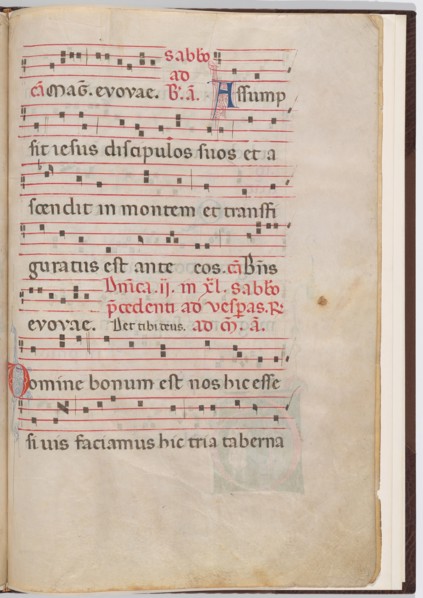 sabbō
ad
cā Mag̃. evovae. B̃. ā. Assump
sit iesus discipulos suos et a
scendit in montem et transfi
guratus est ante eos. cā Bñis
Dñica. ij. in xl. sabbō
p̄cedenti ad vesp̄as. R̃.
evovae. Det tibi deus. ad m̃. ā.
Domine bonum est nos hic esse
si vis faciamus hic tria taberna